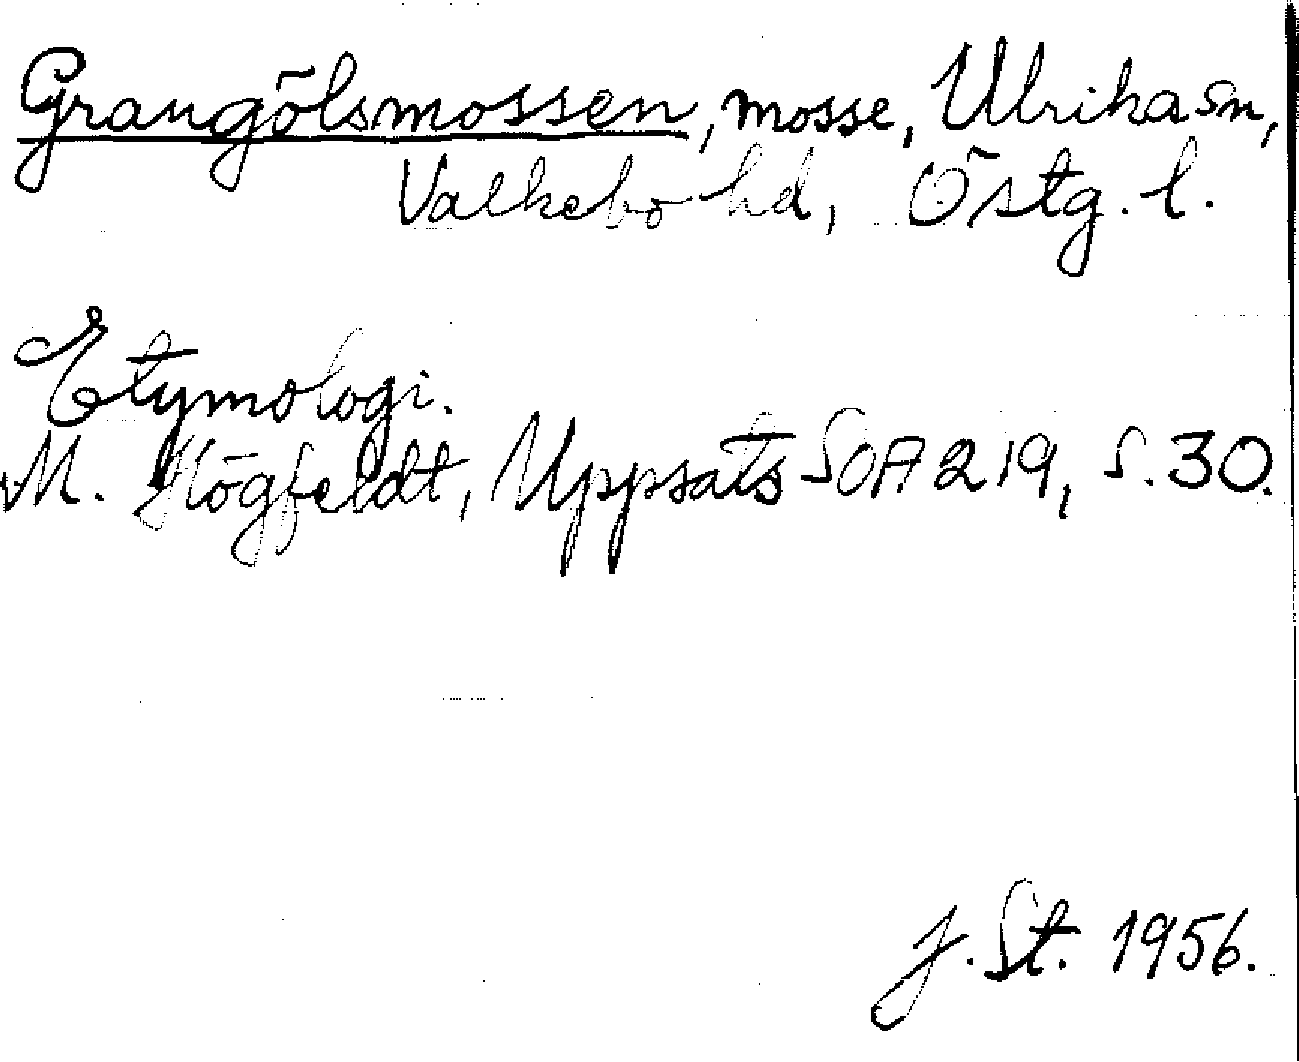 Grangölsmossen, mosse, Ulrika sn,
Valkebo hd, Östg. l.
Etymologi.
M. Högfeldt, Uppsats SOA 219, s. 30.
J. St. 1956.